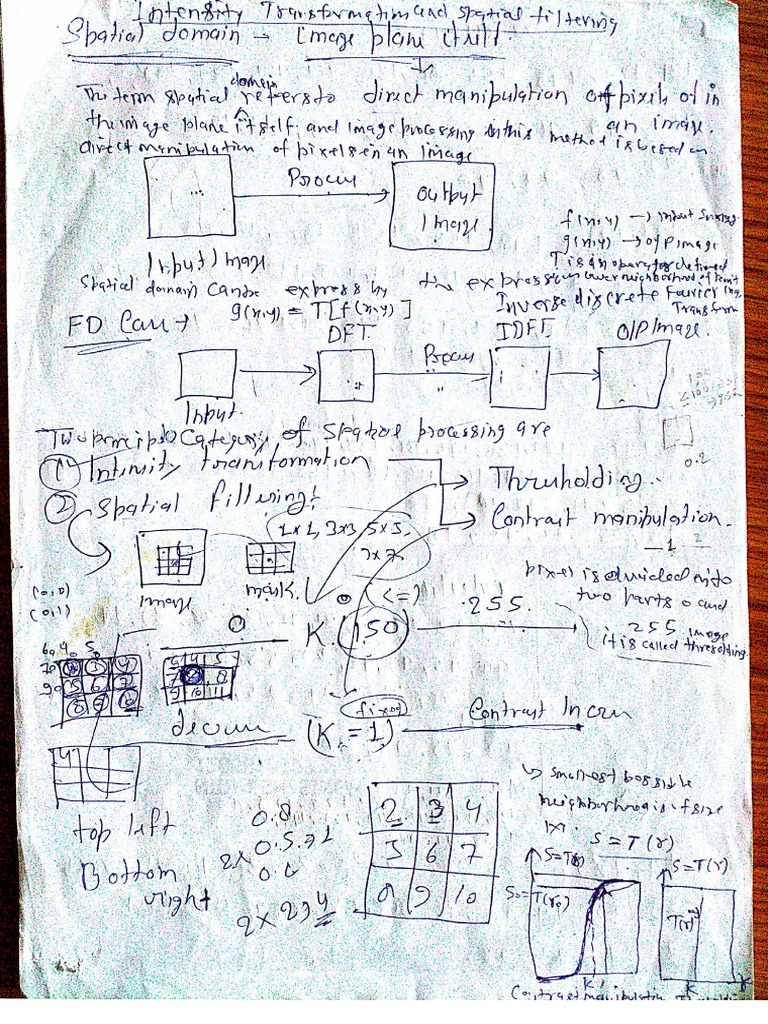 Intensity Transformation and spatial filtering
Spatial domain → Image plane itself.
The term spatial domain refers to direct manipulation of pixels of in an image.
the image plane itself, and image processing in this method is based on
direct manipulation of pixels in an image
Process
Output Image
Input Image
f(x,y) → input Image
g(x,y) → o/p Image
T is an operator defined
over neighborhood of
Spatial domain can be express by the expression
g(x,y) = T[f(x,y)]
Inverse discrete Fourier
Transform
FD Can →
DFT
Process
IDFT
O/P Image.
Input.
0.2
Two principle Category of Spatial processing are
① Intensity transformation
② Spatial filtering:
Thresholding.
Contrast manipulation.
1x1, 3x3, 5x5,
7x7.
image
mask.
(0,0)
(0,1)
0 (<=)
pixel is divided into
two parts 0 and
255 image
it is called thresolding.
0
K.(150)
255.
fixed
(K = 1)
Contrast Incre
smallest possible
neighborhood is of size
1x1.
S = T(r)
top left
Bottom
right
0.8
2x 0.5 = 1
2 x 2 = 4
2 3 4
5 6 7
8 9 10
S = T(r)
S = T(r)
S₀ = T(r₀)
T(r)
K
K
r
Contrast manipulation